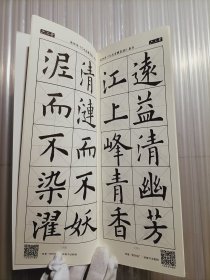 遠益清幽芳
江上峰青香
清漣而不妖
泥而不染濯